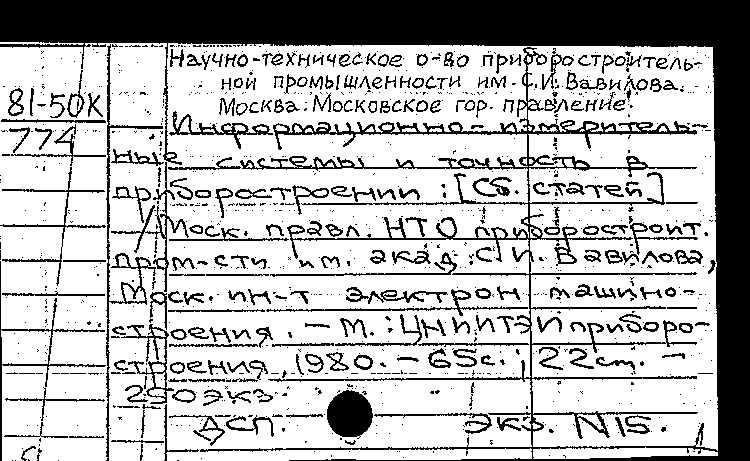 Научно-техническое о-во приборостроитель-
ной промышленности им. С.И. Вавилова.
81-50К
Москва. Московское гор. правление.
774
Информационно-измеритель-
ные системы и точность в
приборостроении : [Сб. статей]
/ Моск. правл. НТО приборостроит.
пром-сти им. акад. С.И. Вавилова,
Моск. ин-т электрон машино-
строения. – М. : ЦНИИТЭИприборо-
строения, 1980. – 65с. ; 22 см. –
250 экз.
ДСП. экз. N15.